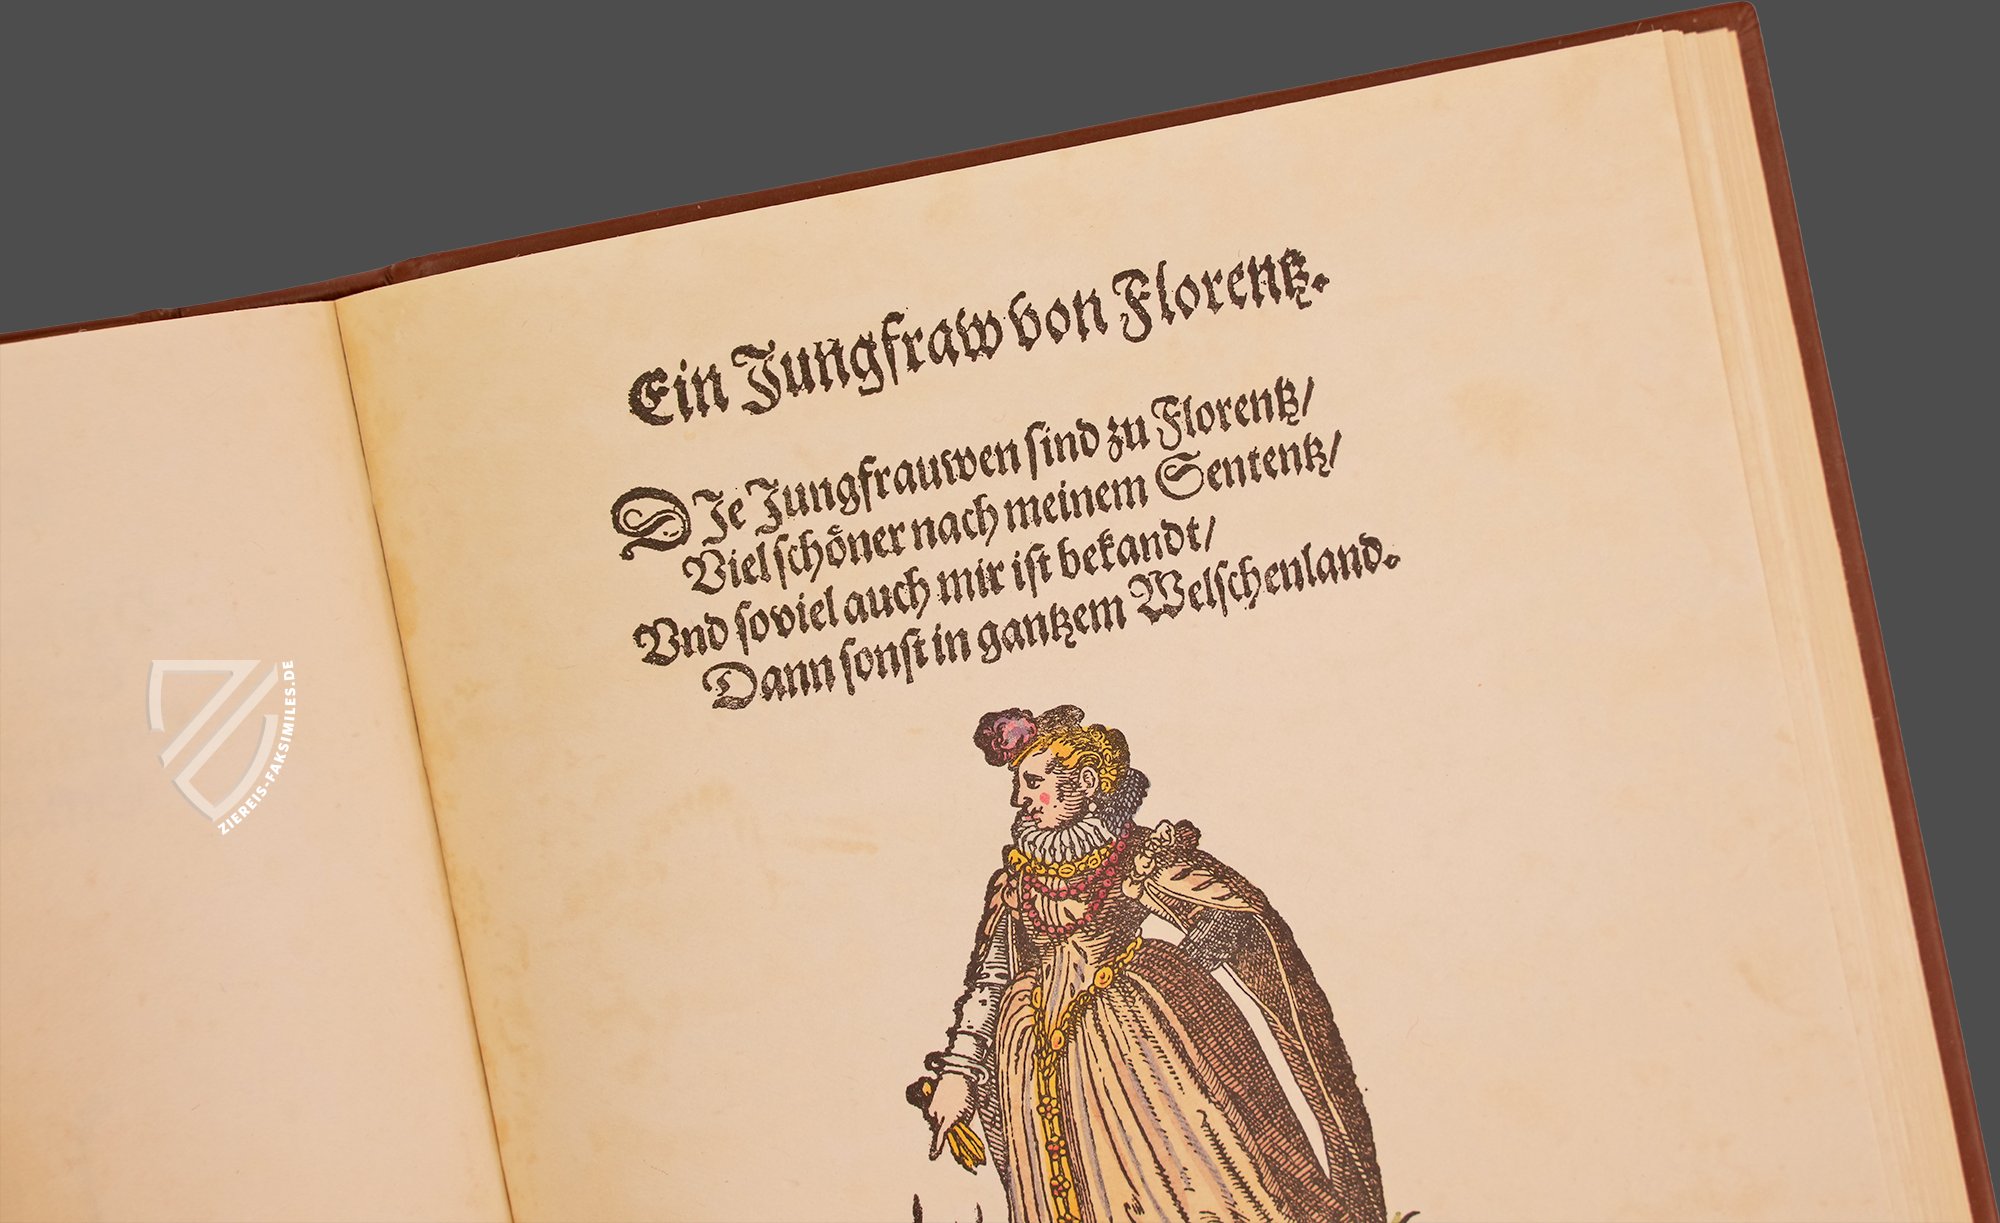 Ein Jungfraw von Florentz.
DIe Jungfrauwen sind zu Florentz/
Viel schöner nach meinem Sententz/
Vnd soviel auch mir ist bekandt/
Dann sonst in gantzem Welschenland.
ZIEREIS-FAKSIMILES.DE